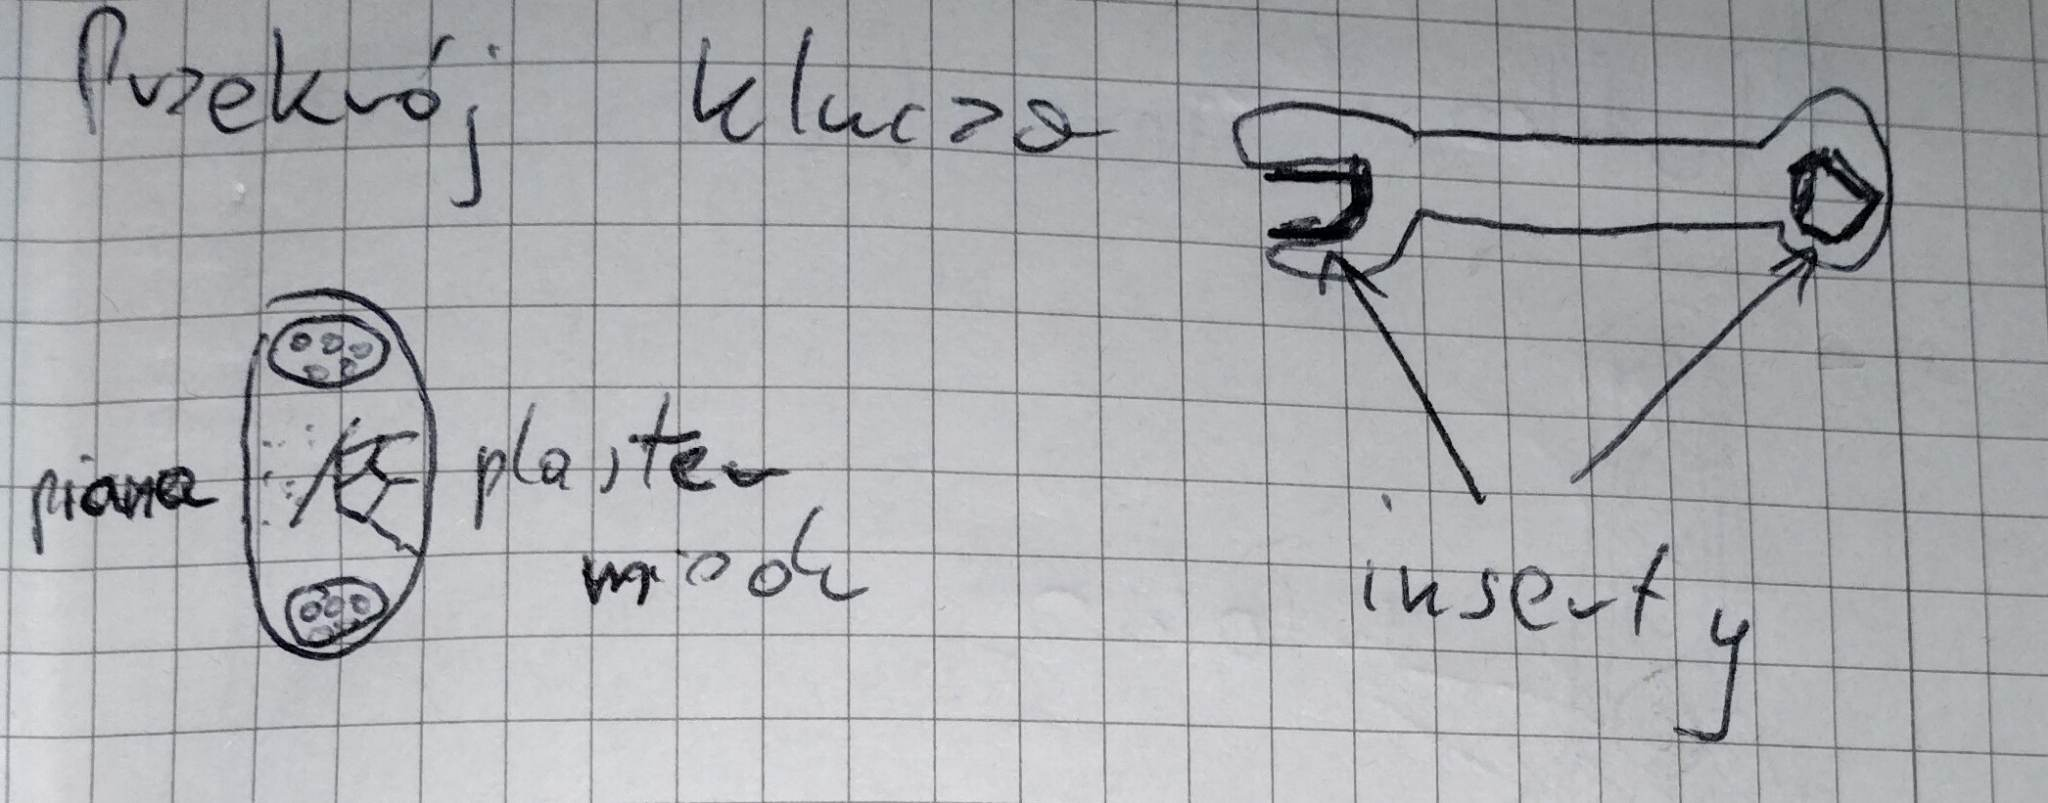 Przekrój klucza
piana
plaster
miodu
inserty